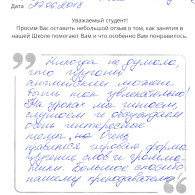 Дата 29.06.2018
Уважаемый студент!
Просим Вас оставить небольшой отзыв о том, как занятия в
нашей Школе помогают Вам и что особенно Вам понравилось.
Никогда не думала,
что изучение
английского может
быть таким увлекательно!
На уроках мы читаем,
слушаем и обсуждаем
очень интересные
темы, но мне
нравится игровая форма
изучения слов и грамматики.
Большое спасибо
нашему преподавателю!